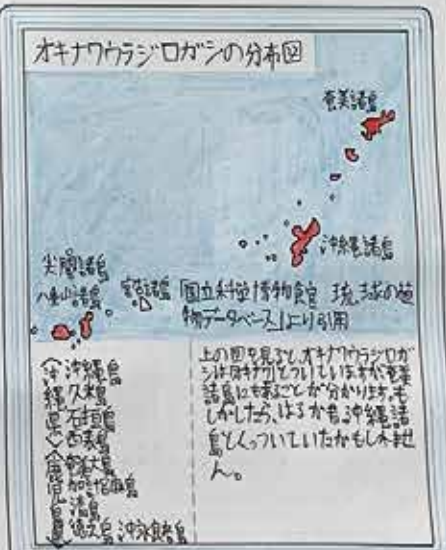 オキナワウラジロガシの分布図
奄美諸島
沖縄諸島
尖閣諸島
八重山諸島
宮古諸島
「国立科学博物館 琉球の植
物データベース」より引用
〈沖縄県〉
沖縄島
久米島
石垣島
西表島
〈鹿児島〉
奄美大島
加計呂麻島
請島
徳之島 沖永良部島
上の図を見ると、オキナワウラジロガ
シは「オキナワ」とついていますが奄美
諸島にもあることが分かります。も
しかしたら、はるか昔、沖縄諸
島とくっついていたかもしれませ
ん。